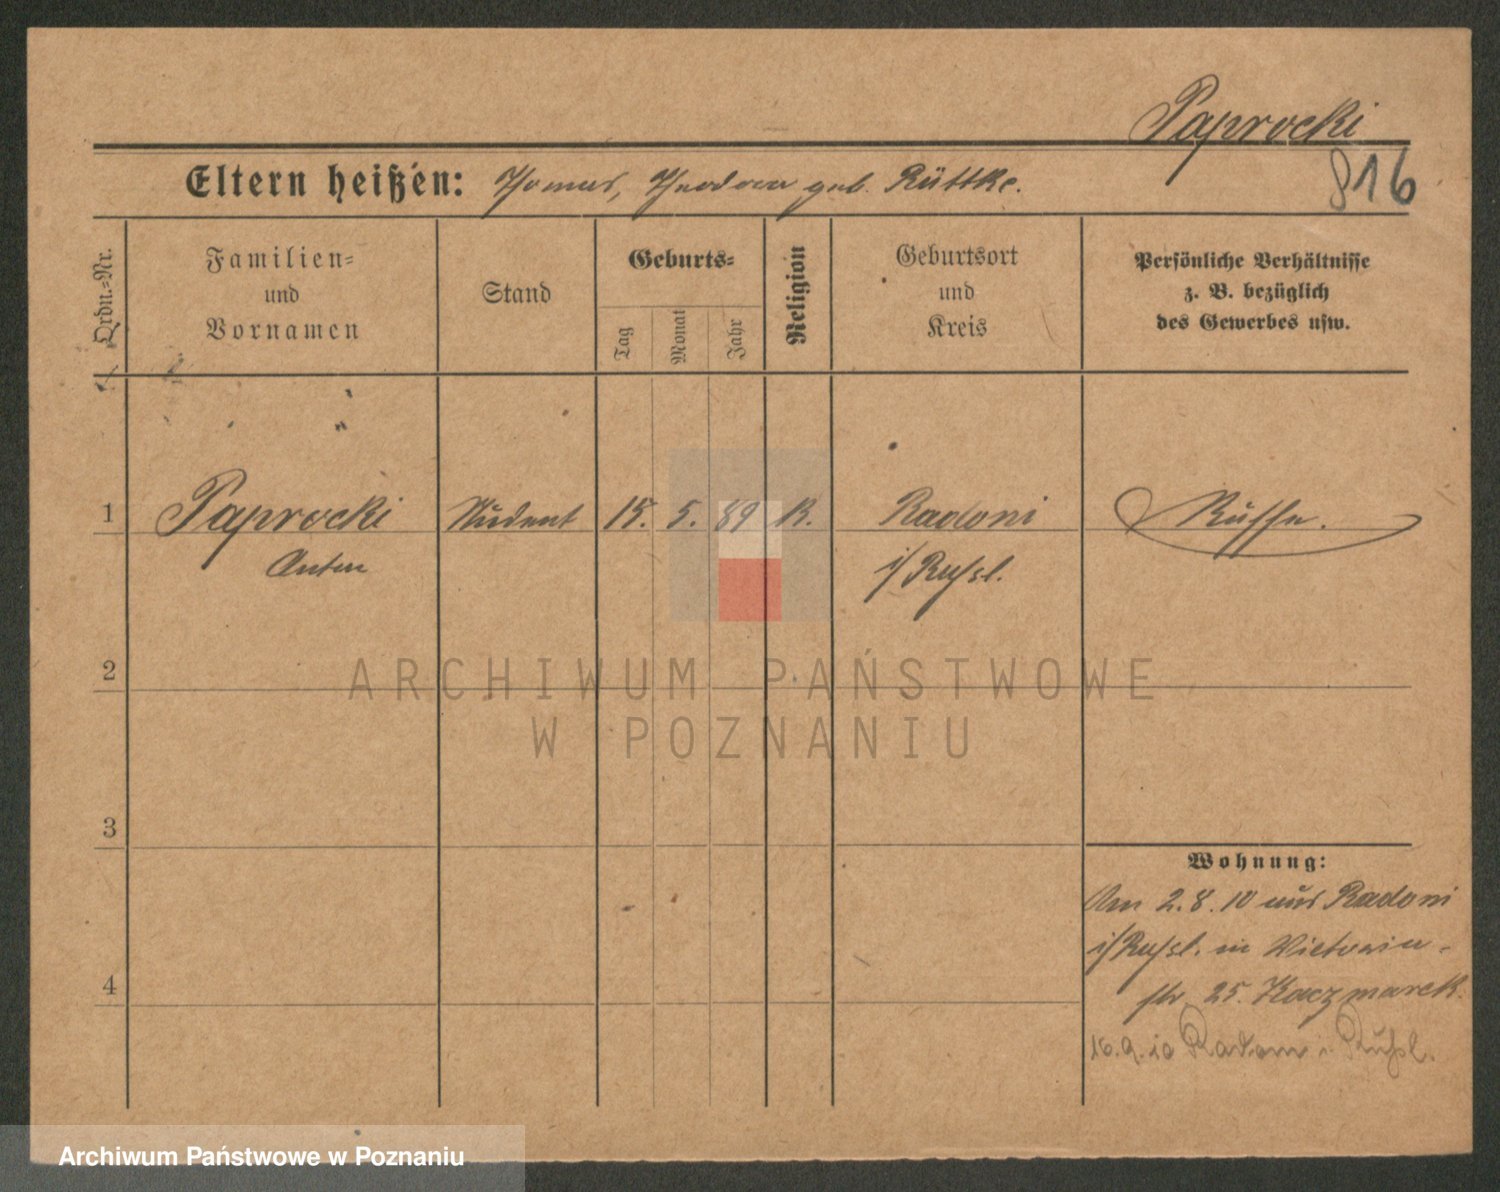 Paprocki
816
Eltern heißen: Thomas, Theodora geb. Rüttke.
Ordn.-Nr.
Familien-
und
Vornamen
Stand
Geburts-
Tag
Monat
Jahr
Religion
Geburtsort
und
Kreis
Persönliche Verhältnisse
z. B. bezüglich
des Gewerbes usw.
1 Paprocki Student 15. 5. 89 K. Radoni Russe.
Anton i/Russl.
2
3
4
Wohnung:
Am 2.8.10 aus Radoni
i/Russl. in Victoria-
str 25. Kaczmarek.
16.9.10 Radom i. Rußl.
ARCHIWUM PAŃSTWOWE
W POZNANIU
Archiwum Państwowe w Poznaniu